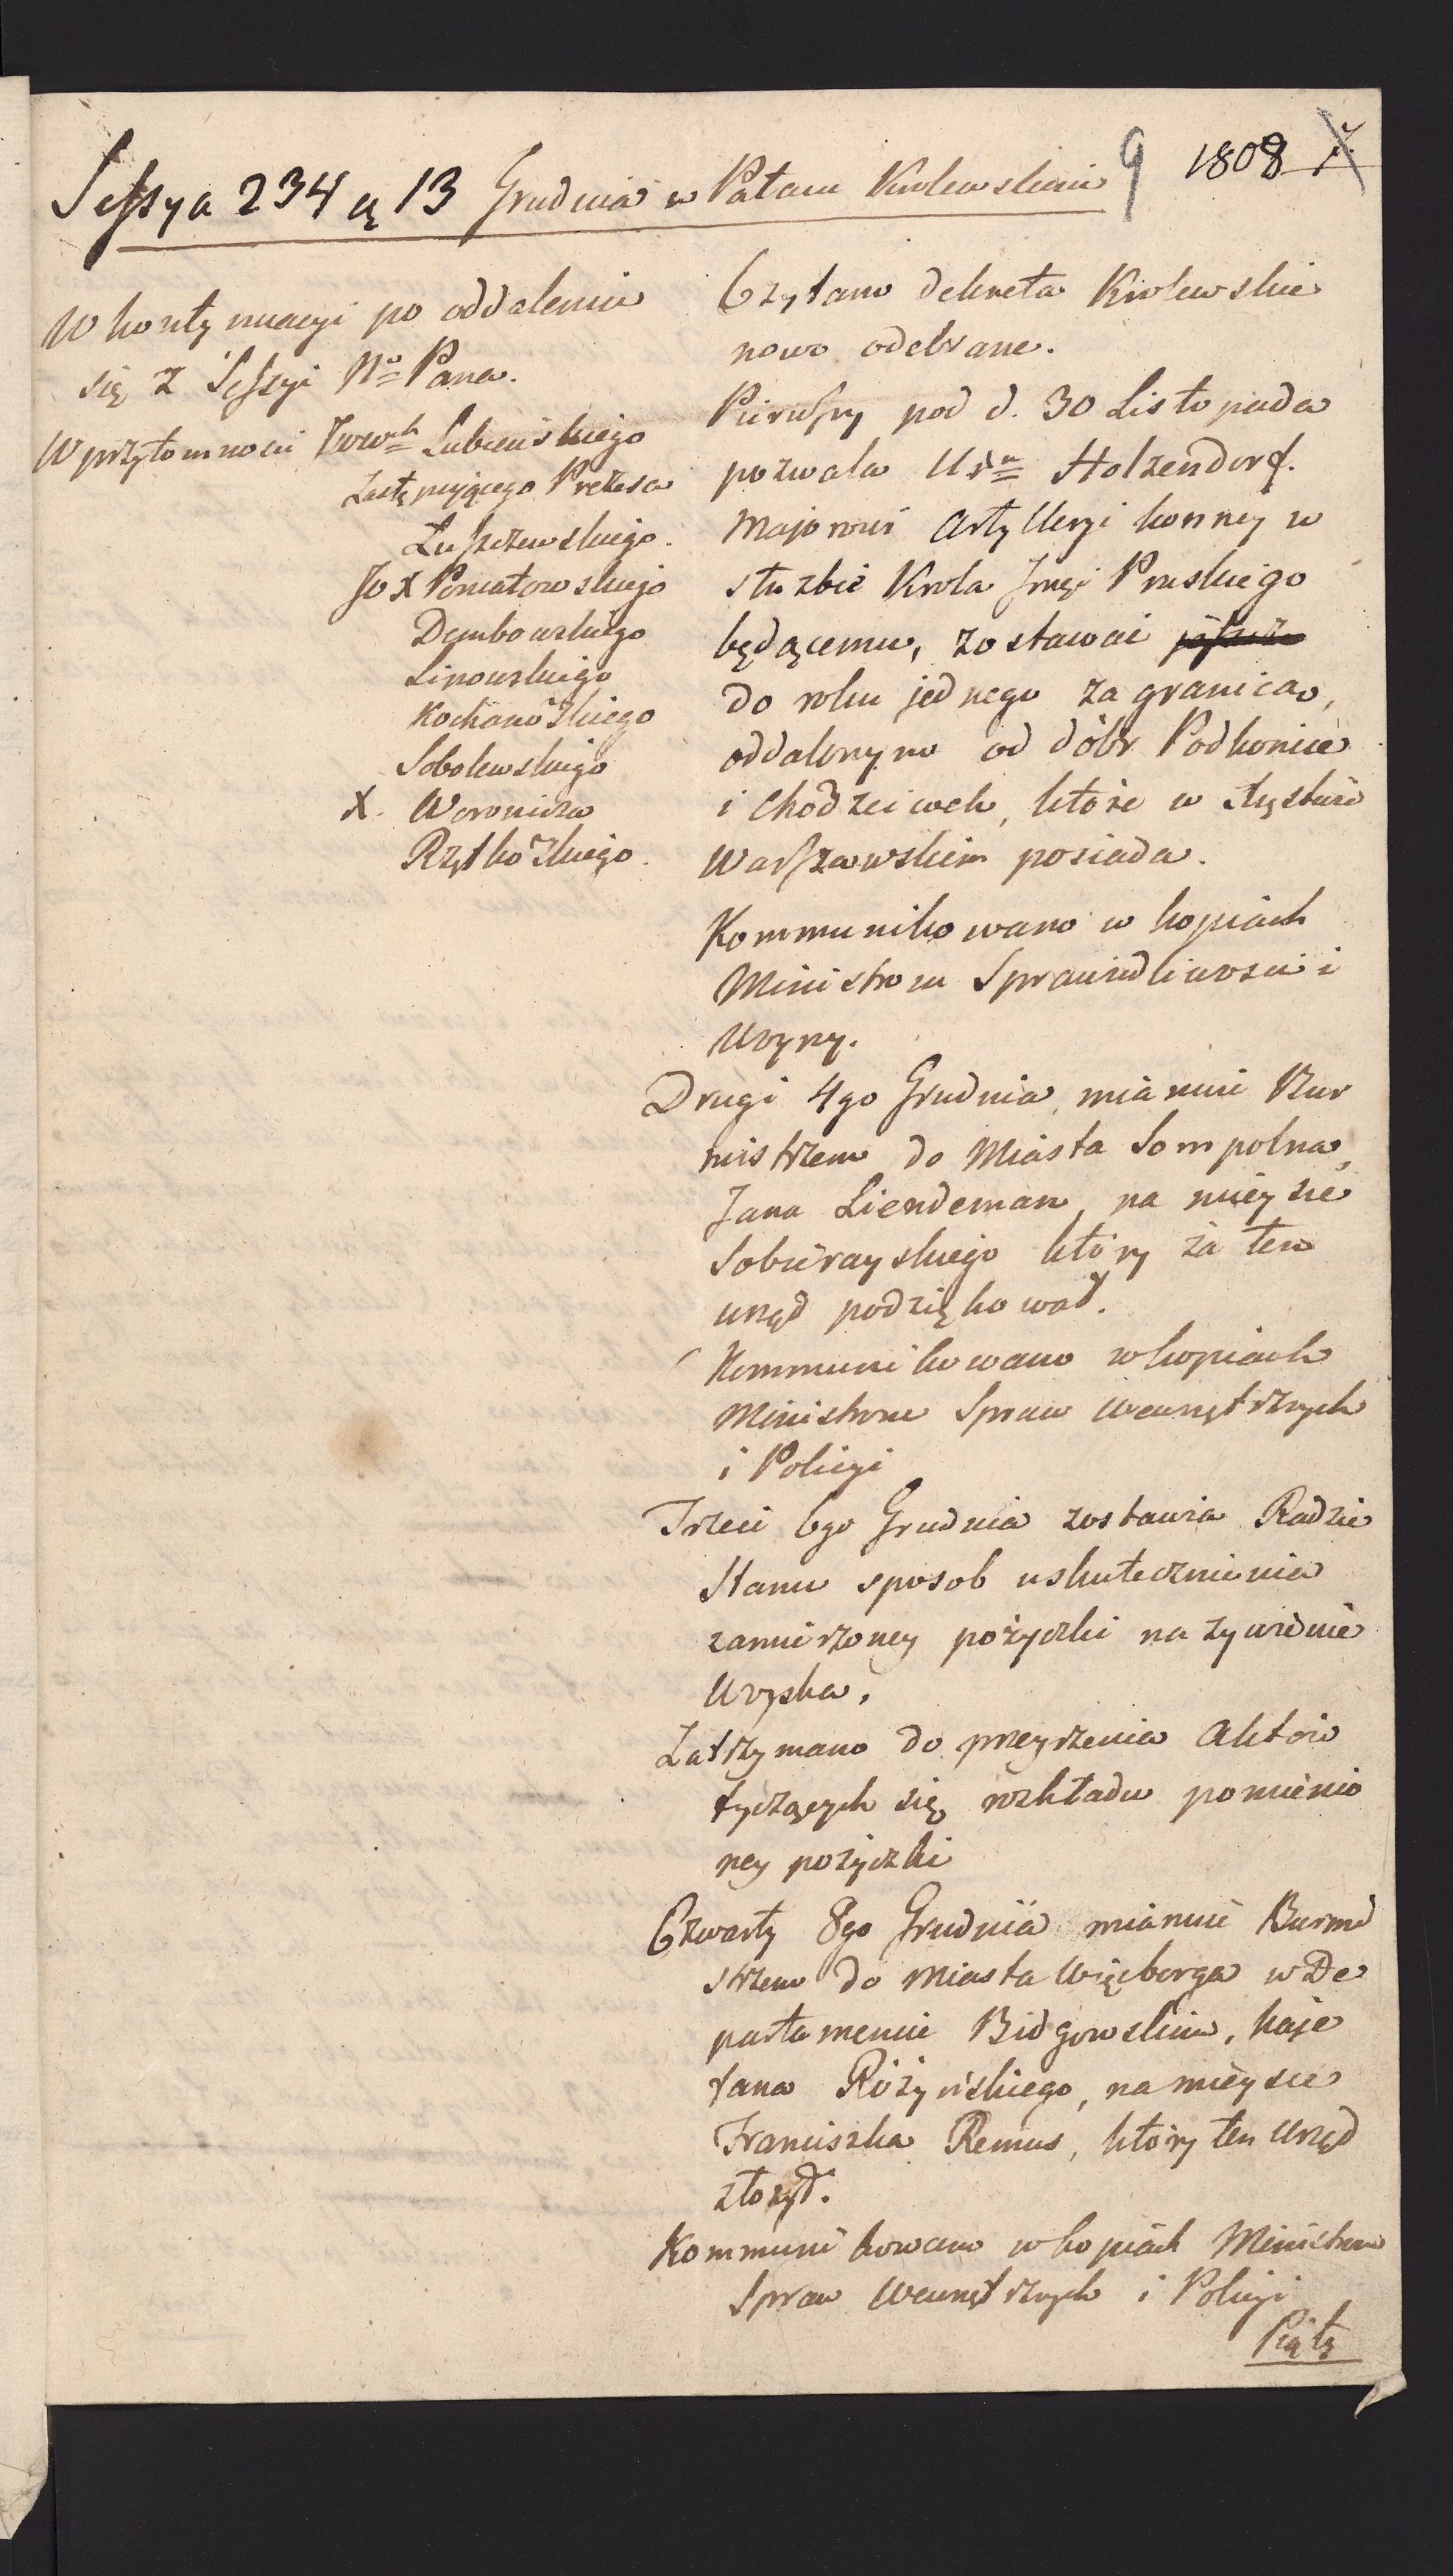 Sessya 234ą 13 Grudnia w Pałacu Krolewskim
9 1808 7.
W kontynuacyi po oddaleniu
się z Sessyi No Pana.
W przytomnosci JWWch Lubieńskiego
Zastępuiącego Prezesa
Luszczewskiego.
JO X Poniatowskiego
Dembowskiego
Linowskiego
Kochanoskiego
Sobolewskiego
X. Woronicza
Rzętkoskiego.
Czytano dekreta Krolewskie
nowo odebrane.
Pierwszy pod d. 30 Listopada
pozwala Urn Holzendorf.
Majorowi Artylleryi konney w
służbie Krola Jmci Pruskiego
będącemu, zostawać
do roku jednego za granicą,
oddalonym od dóbr Podkonice
i Chodzeiwek, które w
Warszawskiem posiada.
Kommunikowano w kopiach
Ministrom Sprawiedliwosci i
Woyny.
Drugi 4go Grudnia, mianuie Bur
mistrzem do Miasta Sompolna,
Jana Liendeman, na mieysce
Sobierayskiego który za ten
urząd podziękował.
Kommunikowano w kopiach
Ministrom Spraw Wewnętrznych
i Policyi
Trzeci 6go Grudnia zostawia Radzie
Stanu sposob uskutecznienia
zamierzoney pożyczki na żywienie
Woyska.
Zatrzymano do przeyrzenia Aktów
tyczących się rozkładu pomienio
ney pożyczki
Czwarty 8go Grudnia mianuie Burmi
strzem do Miasta Więcborga w De
partamencie Bidgowskim, Kaje
tana Różyńskiego, na mieysce
Franciszka Remus, który ten Urząd
złożył.
Kommunikowano w kopiach Ministrom
Spraw Wewnętrznych i Policyi
Piąty